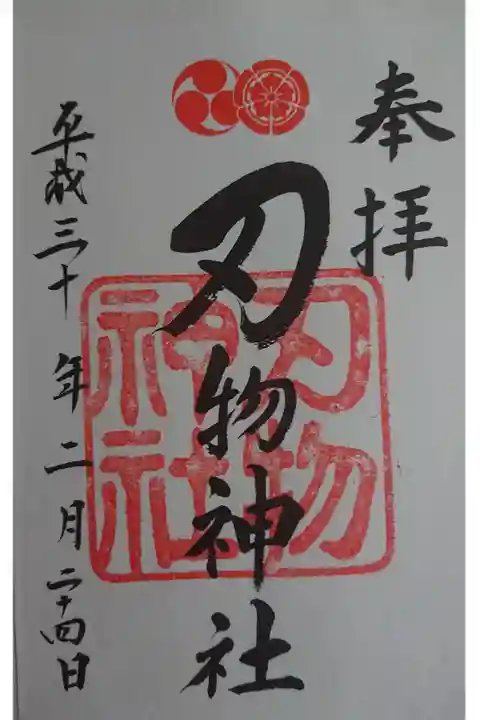 奉拝
刃物神社
刃物神社
平成三十年二月二十四日